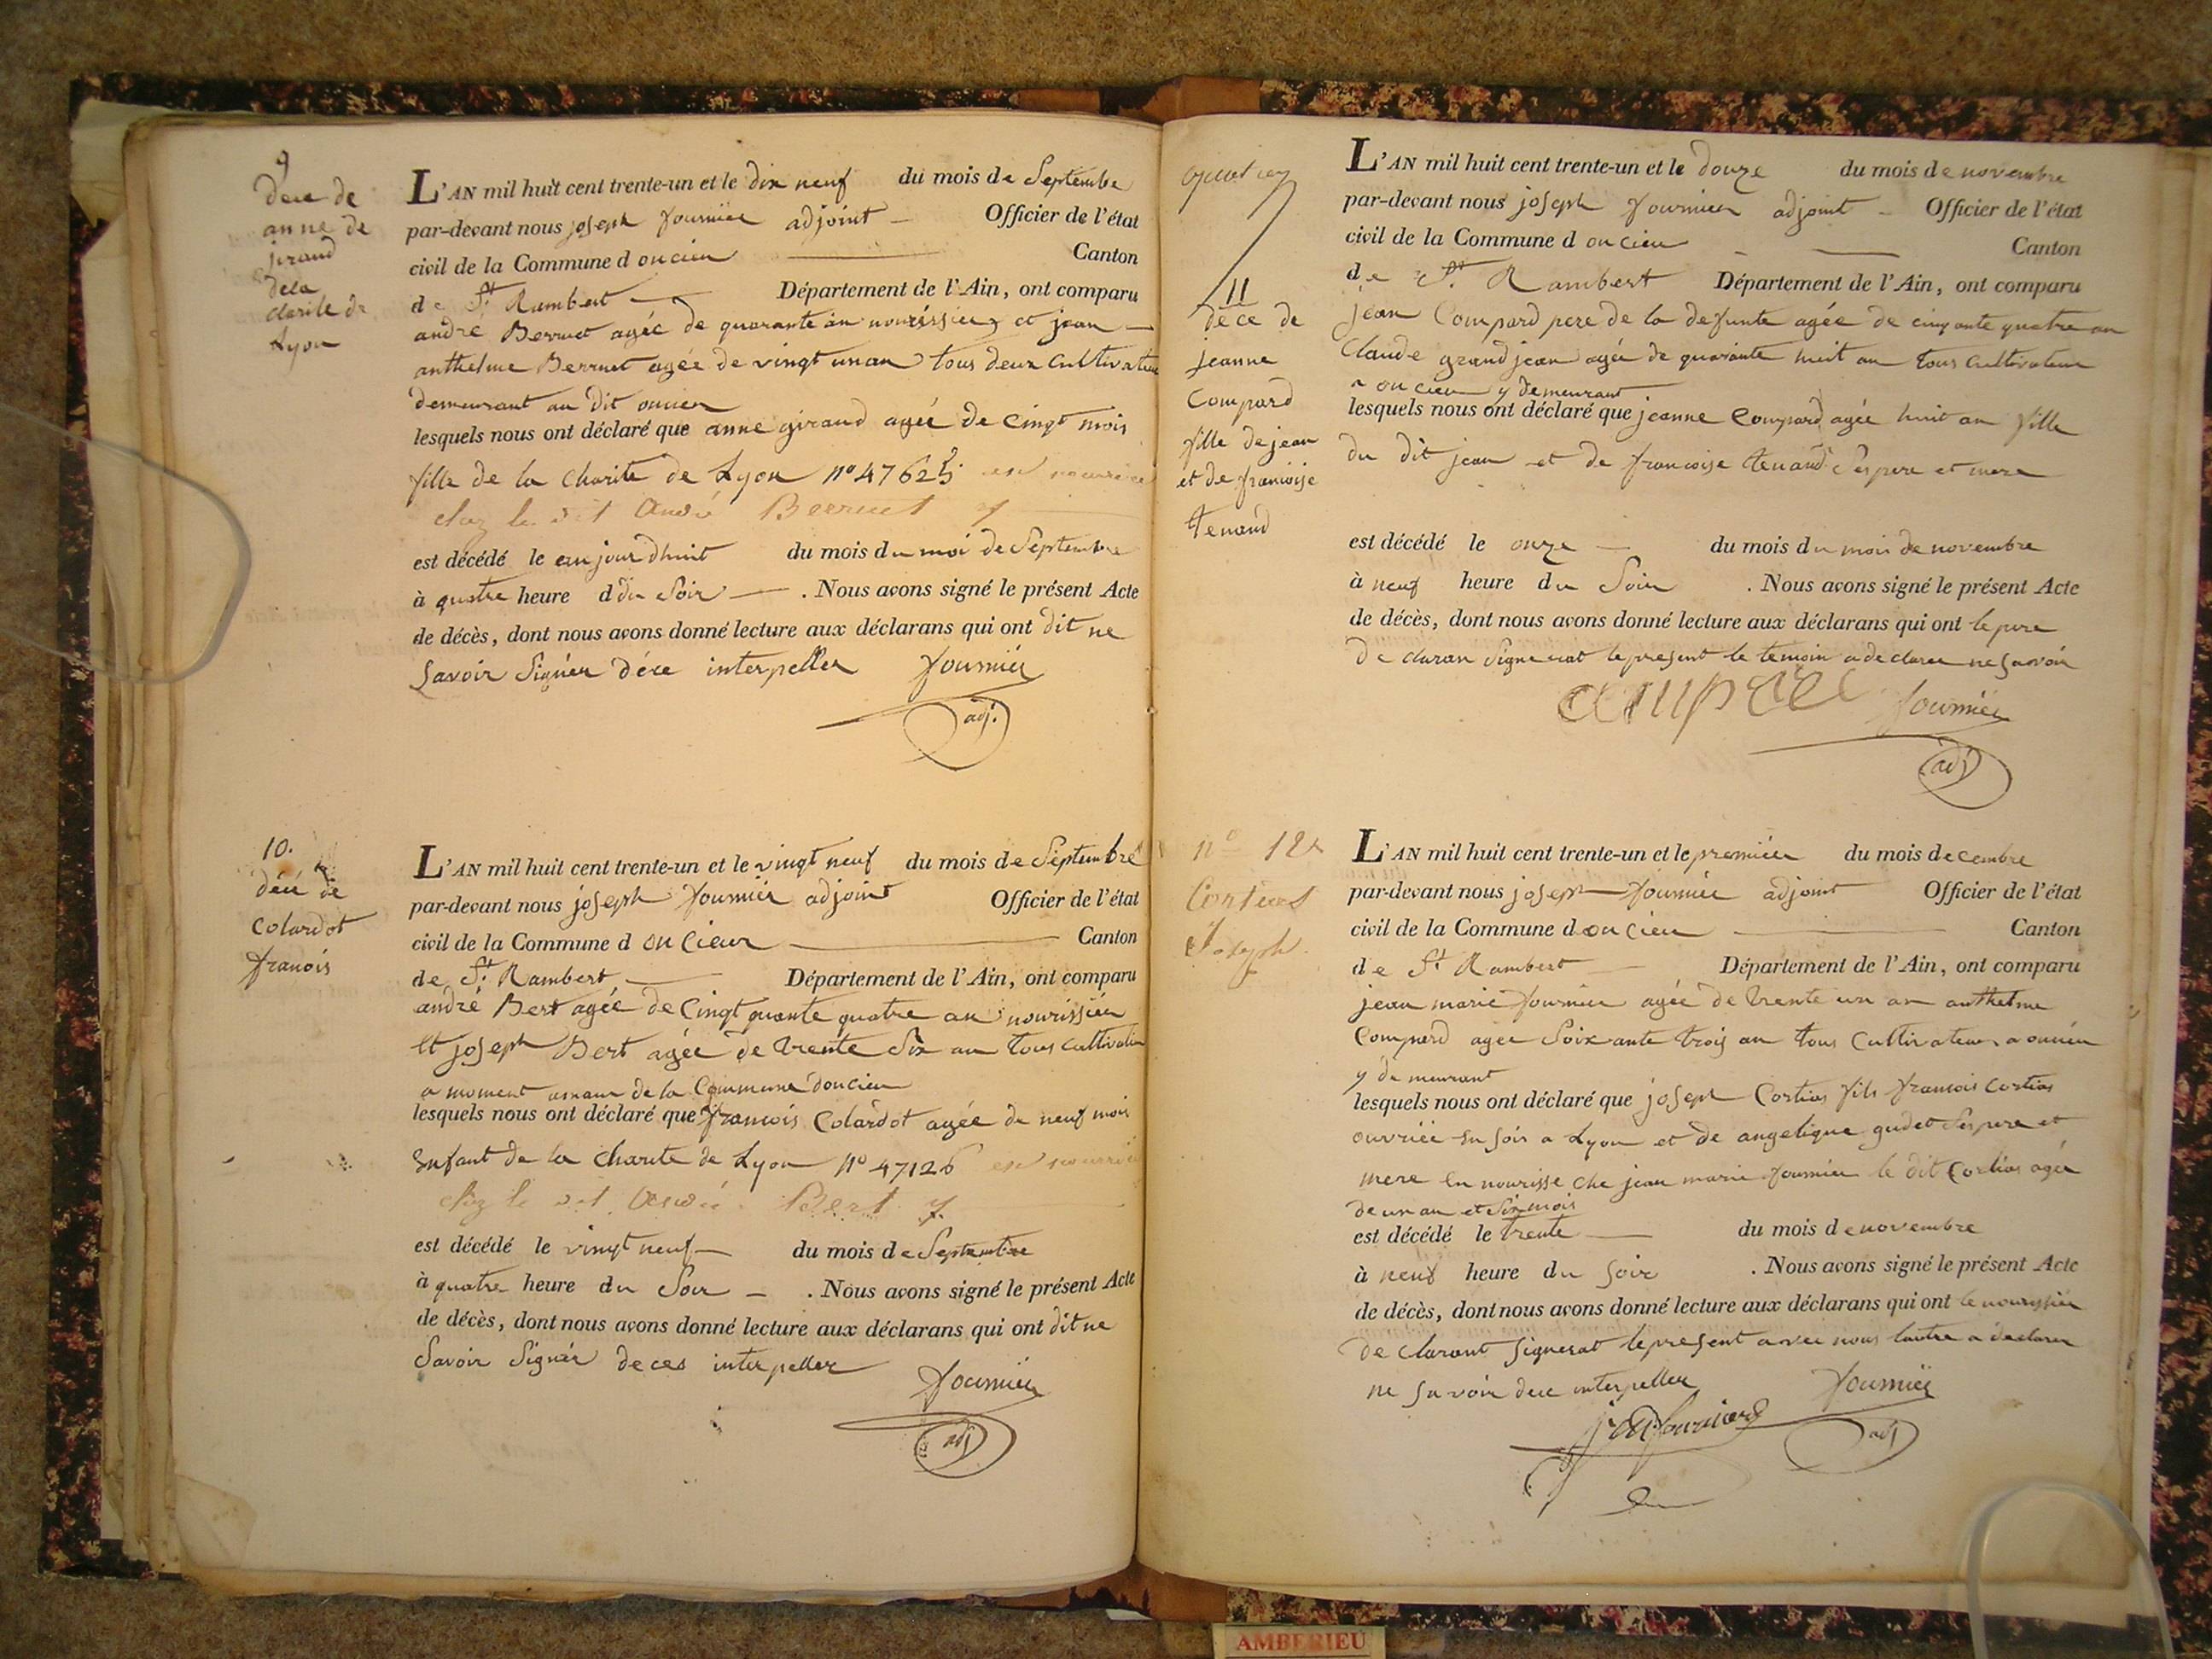 9
déce de
anne de
jiraud
dela
charite de
Lyon
L'AN mil huit cent trente-un et le dix neuf du mois de Septembre
par-devant nous joseph fournier adjoint Officier de l'état
civil de la Commune d oncieu Canton
de St. Rambert Département de l'Ain, ont comparu
andré Berruet agée de quarante an nourissier et jean
anthelme Berruet agée de vingt un an tous deux cultivateur
demeurant au dit oncieu
lesquels nous ont déclaré que anne giraud agée de cinqt mois
fille de la Charite de Lyon n° 47625 en nourrice
chez le dit André Berruet
est décédé le aujourdhuit du mois du moi de Septembre
à quatre heure d du Soir . Nous avons signé le présent Acte
de décès, dont nous avons donné lecture aux déclarans qui ont dit ne
Savoir Signér déce interpeller fournier
adj.
10.
décé de
Colardot
franois
L'AN mil huit cent trente-un et le vingt neuf du mois de Septembre
par-devant nous joseph fournier adjoint Officier de l'état
civil de la Commune d oncieu Canton
de St. Rambert Département de l'Ain, ont comparu
andré Bert agée de Cinqtquante quatre an nourissier
et joseph Bert agée de trente Six an tous cultivateur
a moment de la Commune doncieu
lesquels nous ont déclaré que francois Colardot agée de neuf mois
Enfant de la Charite de Lyon n° 47126 en nourrice
chez le dit André Bert
est décédé le vingt neuf du mois de Septembre
à quatre heure du Soir . Nous avons signé le présent Acte
de décès, dont nous avons donné lecture aux déclarans qui ont dit ne
Savoir Signér deces interpeller
fournier
adj
11
déce de
jeanne
Compard
fille de jean
et de francoise
tenand
L'AN mil huit cent trente-un et le douze du mois de novembre
par-devant nous joseph fournier adjoint Officier de l'état
civil de la Commune d oncieu Canton
de St. Rambert Département de l'Ain, ont comparu
jean Compard pere de la defunte agée de cinqante quatre an
Claude grandjean agée de quarante huit an tous cultivateur
a oncieu y demeurant
lesquels nous ont déclaré que jeanne Compard agée huit an fille
du dit jean et de francoise tenand Ses pere et mere
est décédé le onze du mois du mois de novembre
à neuf heure du Soir . Nous avons signé le présent Acte
de décès, dont nous avons donné lecture aux déclarans qui ont le pere
declaran Signerat le present le temoin a declarer ne Savoir
fournier
adj
n° 12
Cortias
Joseph
L'AN mil huit cent trente-un et le premier du mois decembre
par-devant nous joseph fournier adjoint Officier de l'état
civil de la Commune d oncieu Canton
de St Rambert Département de l'Ain, ont comparu
jean marie fournier agée de trente un an anthelme
Compard agee Soixante trois an tous Cultivateur a oncieu
y demeurant
lesquels nous ont déclaré que joseph Cortias fils francois Cortias
ouvriée en soir a Lyon et de angelique gudet Ses pere et
mere en nourisse che jean marie fournier le dit Cortias agée
de un an et Six mois
est décédé le trente du mois de novembre
à neuf heure du soir . Nous avons signé le présent Acte
de décès, dont nous avons donné lecture aux déclarans qui ont le nourissier
declarant signerat le present avec nous lautre a declarer
ne savoir dece interpeller fournier
adj
AMBERIEU